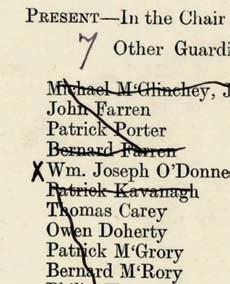 PRESENT—In the Chair
7
Other Guardi
Michael M‘Glinchey, J
John Farren
Patrick Porter
Bernard Farren
X Wm. Joseph O'Donne
Patrick Kavanagh
Thomas Carey
Owen Doherty
Patrick M‘Grory
Bernard M‘Rory